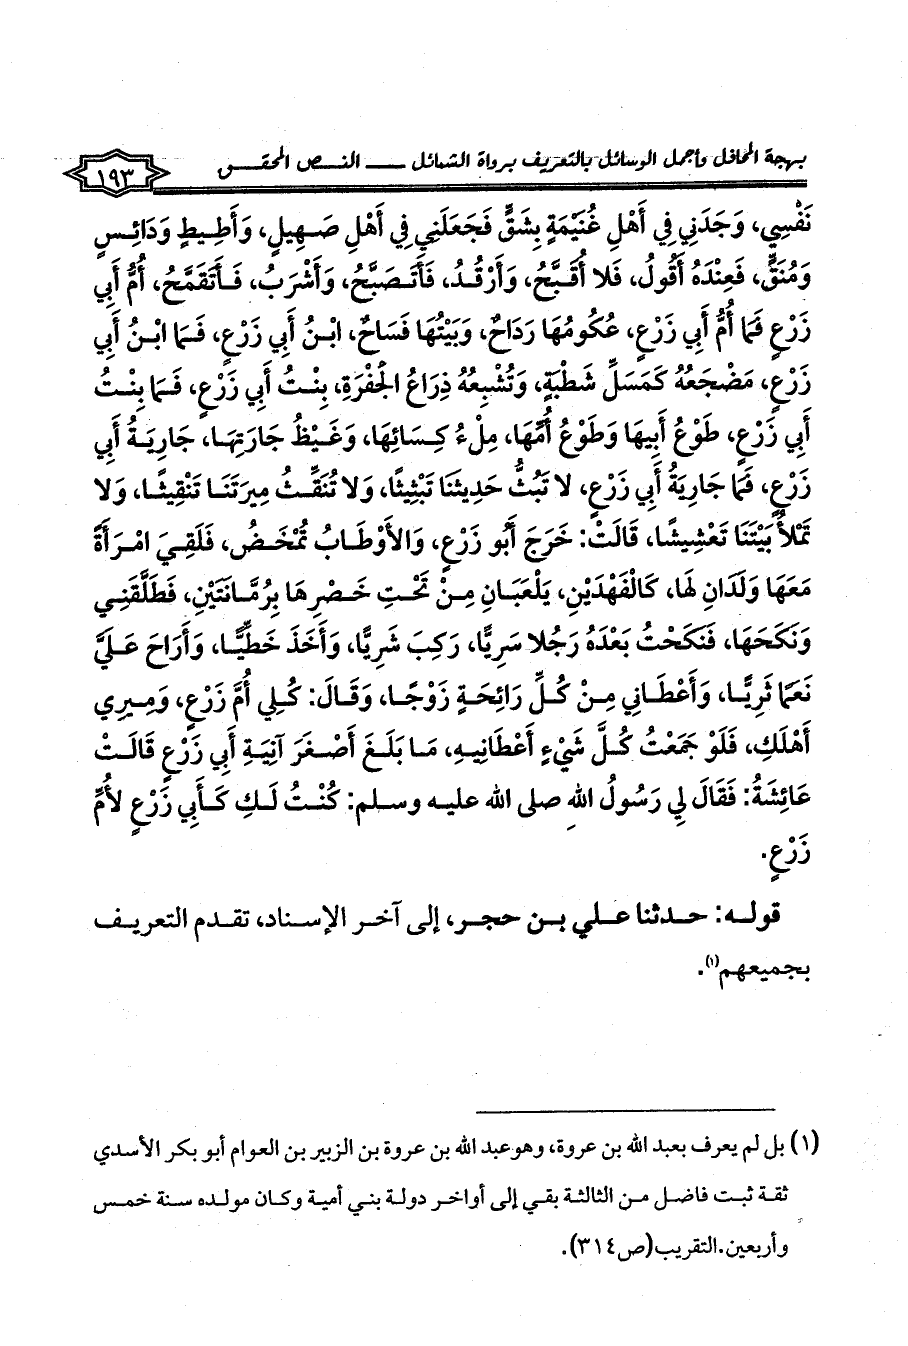 بهجة المحافل وأجمل الوسائل بالتعريف برواة الشمائل ـــ النـص المحقـق
١٩٣
نَفْسِي، وَجَدَنِي فِي أَهْلِ غُنَيْمَةٍ بِشَقٍّ فَجَعَلَنِي فِي أَهْلِ صَهِيلٍ، وَأَطِيطٍ وَدَائِسٍ
وَمُنَقٍّ، فَعِنْدَهُ أَقُولُ، فَلا أُقَبَّحُ، وَأَرْقُدُ، فَأَتَصَبَّحُ، وَأَشْرَبُ، فَأَتَقَمَّحُ، أُمُّ أَبِي
زَرْعٍ فَمَا أُمُّ أَبِي زَرْعٍ، عُكُومُهَا رَدَاحٌ، وَبَيْتُهَا فَسَاحٌ، ابْنُ أَبِي زَرْعٍ، فَمَا ابْنُ أَبِي
زَرْعٍ، مَضْجَعُهُ كَمَسَلِّ شَطْبَةٍ، وَتُشْبِعُهُ ذِرَاعُ الْجَفْرَةِ، بِنْتُ أَبِي زَرْعٍ، فَمَا بِنْتُ
أَبِي زَرْعٍ، طَوْعُ أَبِيهَا وَطَوْعُ أُمِّهَا، مِلْءُ كِسَائِهَا، وَغَيْظُ جَارَتِهَا، جَارِيَةُ أَبِي
زَرْعٍ، فَمَا جَارِيَةُ أَبِي زَرْعٍ، لا تَبُثُّ حَدِيثَنَا تَبْثِيثًا، وَلا تُنَقِّثُ مِيرَتَنَا تَنْقِيثًا، وَلا
تَمْلأُ بَيْتَنَا تَعْشِيشًا، قَالَتْ: خَرَجَ أَبُو زَرْعٍ، وَالأَوْطَابُ تُمْخَضُ، فَلَقِيَ امْرَأَةً
مَعَهَا وَلَدَانِ لَهَا، كَالْفَهْدَيْنِ، يَلْعَبَانِ مِنْ تَحْتِ خَصْرِهَا بِرُمَّانَتَيْنِ، فَطَلَّقَنِي
وَنَكَحَهَا، فَنَكَحْتُ بَعْدَهُ رَجُلا سَرِيًّا، رَكِبَ شَرِيًّا، وَأَخَذَ خَطِّيًّا، وَأَرَاحَ عَلَيَّ
نَعَمًا ثَرِيًّا، وَأَعْطَانِي مِنْ كُلِّ رَائِحَةٍ زَوْجًا، وَقَالَ: كُلِي أُمَّ زَرْعٍ، وَمِيرِي
أَهْلَكِ، فَلَوْ جَمَعْتُ كُلَّ شَيْءٍ أَعْطَانِيهِ، مَا بَلَغَ أَصْغَرَ آنِيَةِ أَبِي زَرْعٍ قَالَتْ
عَائِشَةُ: فَقَالَ لِي رَسُولُ اللهِ صلى الله عليه وسلم: كُنْتُ لَكِ كَأَبِي زَرْعٍ لأُمِّ
زَرْعٍ.
قوله: حدثنا علي بن حجر، إلى آخر الإسناد، تقدم التعريف
بجميعهم(١).
(١) بل لم يعرف بعبد الله بن عروة، وهو عبد الله بن عروة بن الزبير بن العوام أبو بكر الأسدي
ثقة ثبت فاضل من الثالثة بقي إلى أواخر دولة بني أمية وكان مولده سنة خمس
وأربعين.التقريب(ص٣١٤).